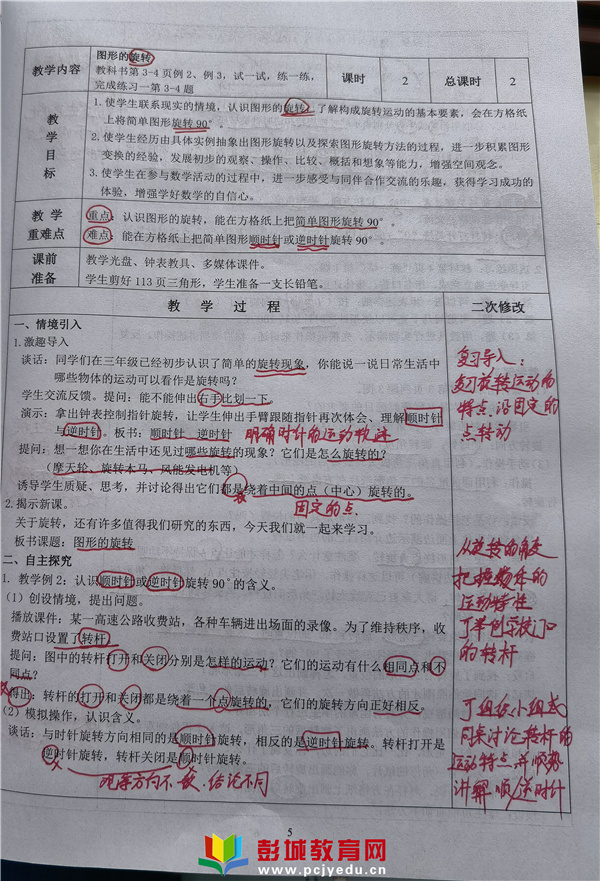 教学内容
图形的旋转
教科书第3-4页例2、例3，试一试，练一练，
完成练习一第3-4题
课时
2
总课时
2
教
学
目
标
1.使学生联系现实的情境，认识图形的旋转，了解构成旋转运动的基本要素，会在方格纸
上将简单图形旋转90°。
2.使学生经历由具体实例抽象出图形旋转以及探索图形旋转方法的过程，进一步积累图形
变换的经验，发展初步的观察、操作、比较、概括和想象等能力，增强空间观念。
3.使学生在参与数学活动的过程中，进一步感受与同伴合作交流的乐趣，获得学习成功的
体验，增强学好数学的自信心。
教 学
重难点
重点：认识图形的旋转，能在方格纸上把简单图形旋转90°。
难点：能在方格纸上把简单图形顺时针或逆时针旋转90°。
课前
准备
教学光盘、钟表教具、多媒体课件。
学生剪好113页三角形，学生准备一支长铅笔。
教 学 过 程
二次修改
一、情境引入
1.激趣导入
谈话：同学们在三年级已经初步认识了简单的旋转现象，你能说一说日常生活中
哪些物体的运动可以看作是旋转吗？
学生交流反馈。提问：能不能伸出右手比划一下。
演示：拿出钟表控制指针旋转，让学生伸出手臂跟随指针再次体会、理解顺时针
与逆时针。板书：顺时针 逆时针 明确时针的运动轨迹
提问：想一想你在生活中还见过哪些旋转的现象？它们是怎么旋转的？
（摩天轮、旋转木马、风能发电机等）
诱导学生质疑、思考，并讨论得出它们都是绕着中间的点（中心）旋转的。
固定的点.
2.揭示新课。
关于旋转，还有许多值得我们研究的东西，今天我们就一起来学习。
板书课题：图形的旋转
二、自主探究
1. 教学例2：认识顺时针或逆时针旋转90°的含义。
（1）创设情境，提出问题。
播放课件：某一高速公路收费站，各种车辆进出场面的录像。为了维持秩序，收
费站口设置了转杆。
提问：图中的转杆打开和关闭分别是怎样的运动？它们的运动有什么相同点和不
同点？
得出：转杆的打开和关闭都是绕着一个点旋转的，它们的旋转方向正好相反。
（2）模拟操作，认识含义。
谈话：与时针旋转方向相同的是顺时针旋转，相反的是逆时针旋转。转杆打开是
逆时针旋转，转杆关闭是顺时针旋转。
观察方向不一致，结论不同
复习导入：
复习旋转运动的
特点.沿固定的
点转动
从旋转的角度
把握物体的
运动特性
可举例学校门口
的转杆
可组织小组式
同桌讨论转杆的
运动特点,并顺势
讲解顺/逆时针
5
彭城教育网
www.pcjyedu.cn